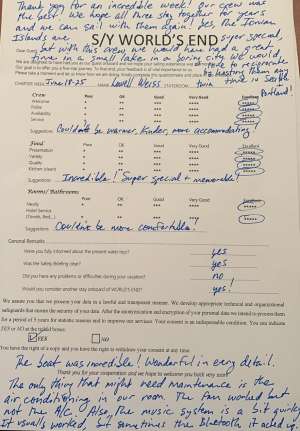 Thank you for an incredible week! Our crew was
the best. We hope all three stay together for years
and we can sail with them again! Yes the Ionian
Islands are super special,
S/Y WORLD'S END
but with this crew we would have had a great
time in a small lake in a boring city. We would
Dear Guest,
CHARTER WEEK June 18-25 NAME Lowell Weiss
time in Seattle
Portland!
Crew Poor OK Good Very Good Excellent
Welcome * ** *** **** *****
Polite * ** *** **** *****
Availability * ** *** **** *****
Service * ** *** **** *****
Suggestion: Couldn't be warmer, kinder, more accommodating!
Food Poor OK Good Very Good Excellent
Presentation * ** *** **** *****
Variety * ** *** **** *****
Quality * ** *** **** *****
Kitchen (clean) * ** *** **** *****
Suggestion: Incredible! Super special + memorable!
Rooms/ Bathrooms Poor OK Good Very Good Excellent
Neatly * ** *** **** *****
Hotel Service * ** *** **** *****
(Towels, Bed,...)
Suggestion: Couldn't be more comfortable.
General Remarks
Have you fully informed about the present water rest? yes
Was the Safety Briefing clear? yes
Did you have any problems or difficulties during your vacation? no
Would you consider another stay onboard of WORLD'S END? yes!
We assure you that we process your data in a lawful and transparent manner. We develop appropriate technical and organizational
safeguards that ensure the security of your data. After the anonymization and encryption of your personal data we intend to process them
for a period of 5 years for statistic reasons and to improve our services. Your consent is an indispensable condition. You can indicate
YES or NO at the related boxes.
YES NO
You have the right of a copy and you have the right to withdraw your consent at any time.
The boat was incredible! Wonderful in every detail.
Thank you for your cooperation and we hope to welcome you back very soon!
The only thing that might need maintenance is the
air conditioning in our room. The fan worked but
not the A/C. Also, the music system is a bit quirky.
It usually worked, but sometimes the bluetooth it acted up.